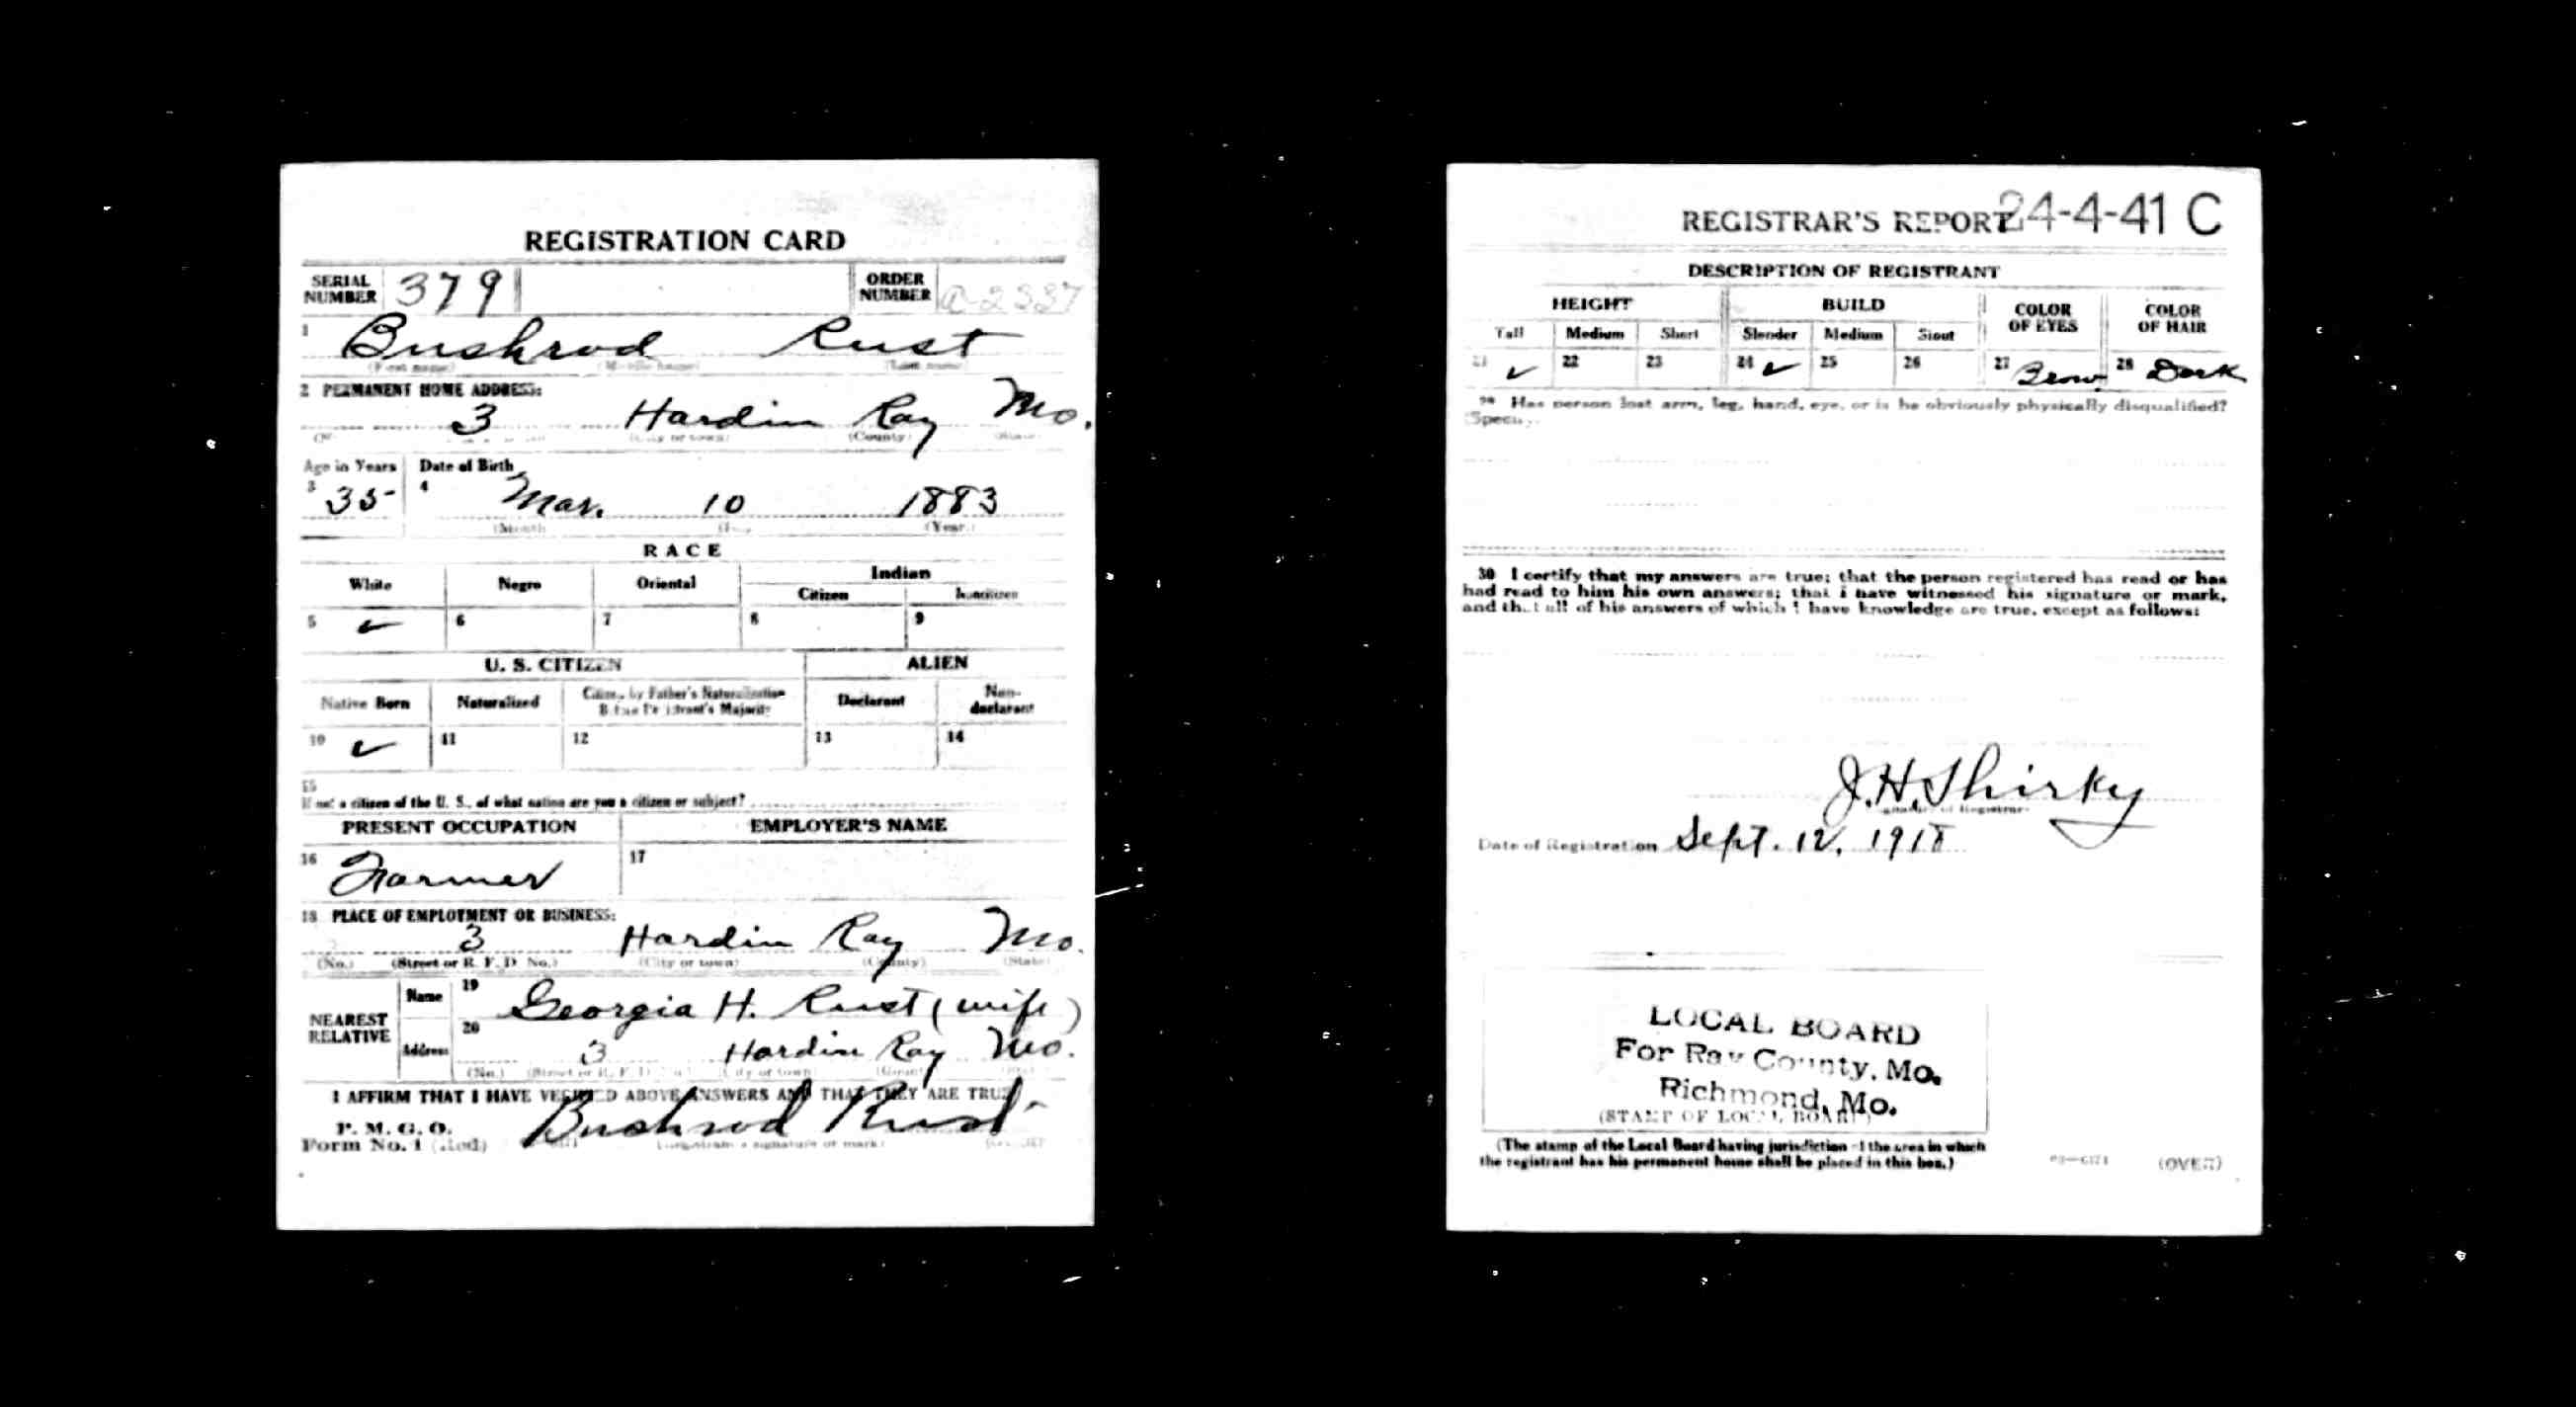 REGISTRATION CARD
SERIAL NUMBER 379 ORDER NUMBER
1 Bushrod Rust
(First name) (Middle name) (Last name)
2 PERMANENT HOME ADDRESS:
3 Hardin Ray Mo.
(City or town) (County) (State)
Age in Years Date of Birth
3 35 4 Mar. 10 1883
(Month) (Year)
RACE
White Negro Oriental Indian
Citizen Noncitizen
5 ✓ 6 7 8 9
U. S. CITIZEN ALIEN
Native Born Naturalized Citizen by Father's Naturalization Before Registrant's Majority Declarant Non-declarant
10 ✓ 11 12 13 14
15
If not a citizen of the U. S., of what nation are you a citizen or subject?
PRESENT OCCUPATION EMPLOYER'S NAME
16 Farmer 17
18 PLACE OF EMPLOYMENT OR BUSINESS:
3 Hardin Ray Mo.
(No.) (Street or R. F. D. No.) (City or town) (County) (State)
NEAREST RELATIVE
Name 19 Georgia H. Rust (wife)
Address 20 3 Hardin Ray Mo.
(No.) (Street or R. F. D. No.) (City or town) (County) (State)
I AFFIRM THAT I HAVE VERIFIED ABOVE ANSWERS AND THAT THEY ARE TRUE
P. M. G. O.
Form No. 1 (Red) Bushrod Rust
(Registrant's signature or mark)
REGISTRAR'S REPORT 24-4-41 C
DESCRIPTION OF REGISTRANT
HEIGHT BUILD COLOR OF EYES COLOR OF HAIR
Tall Medium Short Slender Medium Stout
21 ✓ 22 23 24 ✓ 25 26 27 Brow 28 Dark
29 Has person lost arm, leg, hand, eye, or is he obviously physically disqualified?
(Specify
30 I certify that my answers are true; that the person registered has read or has
had read to him his own answers; that I have witnessed his signature or mark,
and that all of his answers of which I have knowledge are true, except as follows:
J. H. Shirky
Signature of Registrar
Date of Registration Sept. 12, 1918
LOCAL BOARD
For Ray County, Mo.
Richmond, Mo.
(STAMP OF LOCAL BOARD)
(The stamp of the Local Board having jurisdiction of the area in which
the registrant has his permanent home shall be placed in this box.)
(OVER)